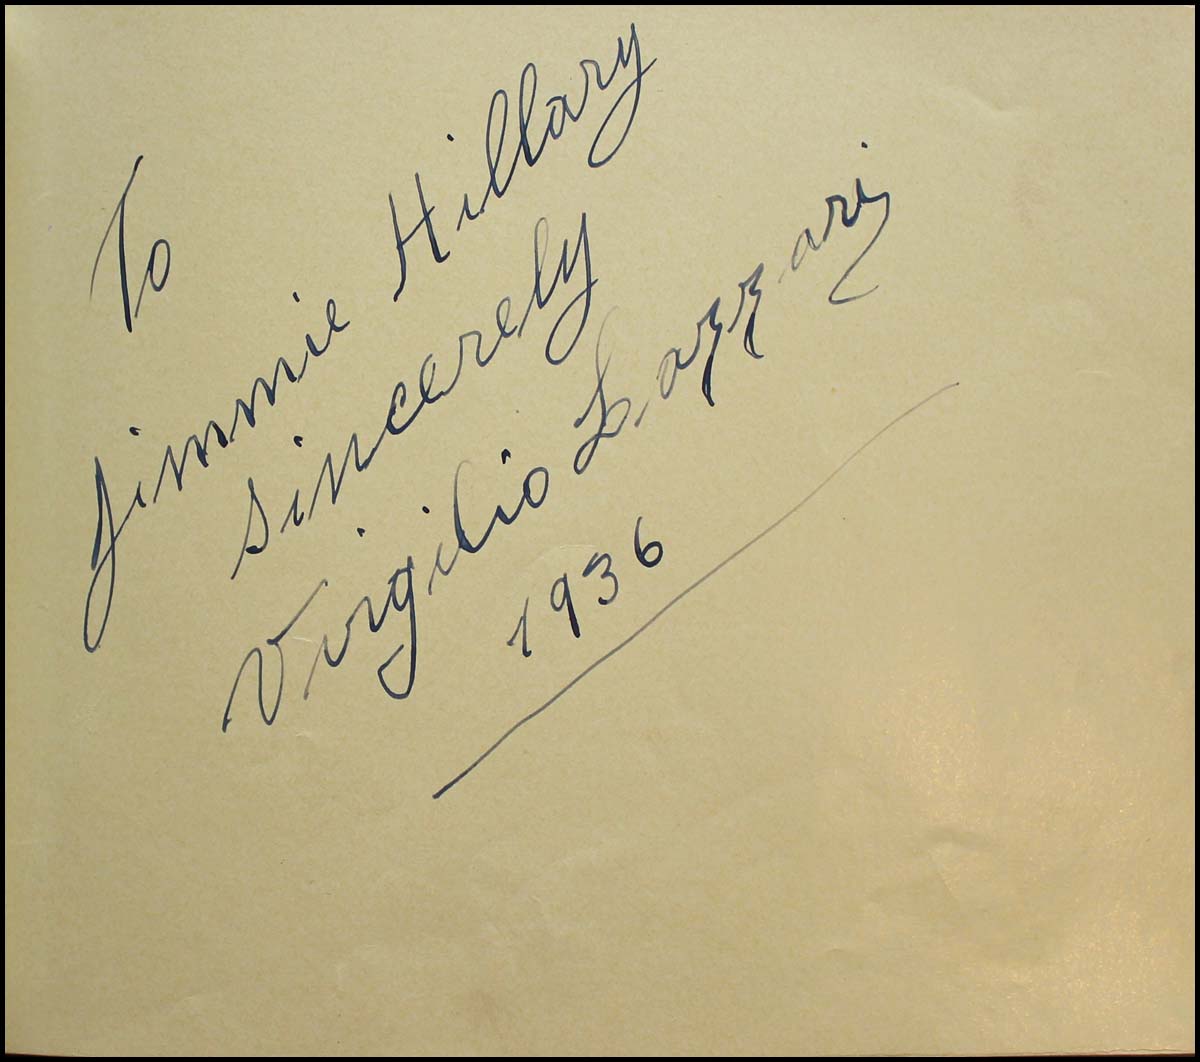 To
Jimmie Hillary
Sincerely
Virgilio Lazzari
1936